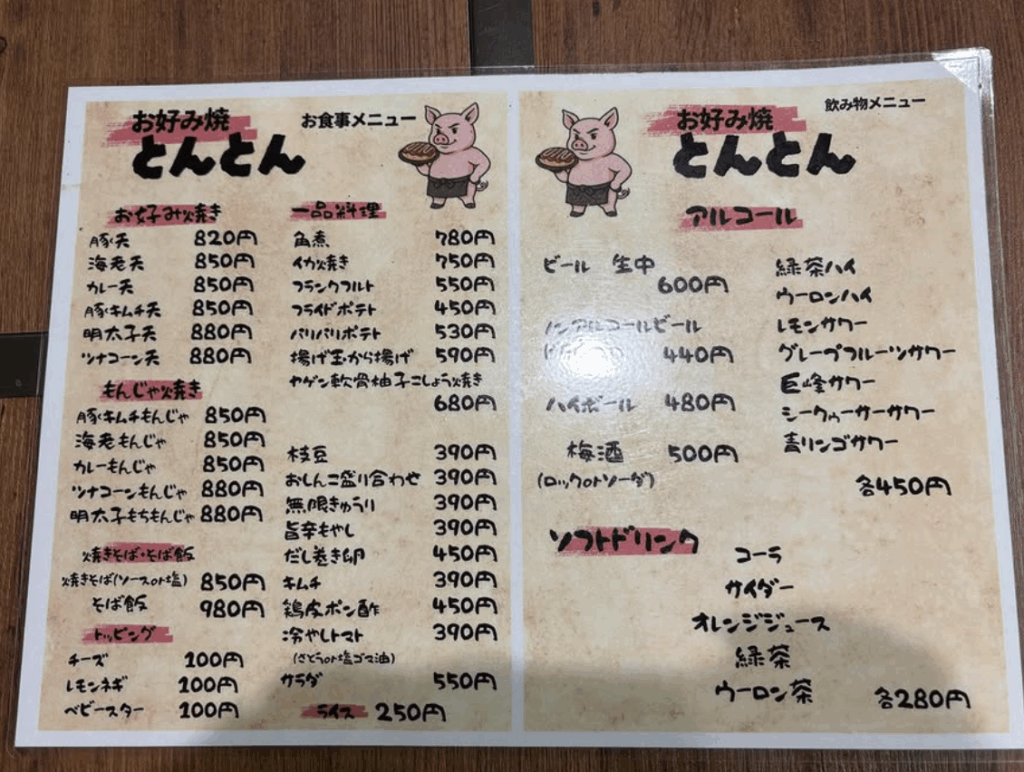 お好み焼
とんとん
お食事メニュー
お好み焼き
豚天 820円
海老天 850円
カレー天 850円
豚キムチ天 850円
明太子天 880円
ツナコーン天 880円
もんじゃ焼き
豚キムチもんじゃ 850円
海老もんじゃ 850円
カレーもんじゃ 850円
ツナコーンもんじゃ 880円
明太子もちもんじゃ 880円
焼きそば・そば飯
焼きそば(ソースor塩) 850円
そば飯 980円
トッピング
チーズ 100円
レモンネギ 100円
ベビースター 100円
一品料理
角煮 780円
イカ焼き 750円
フランクフルト 550円
フライドポテト 450円
パリパリポテト 530円
揚げ玉から揚げ 590円
ヤゲン軟骨柚子こしょう焼き
680円
枝豆 390円
おしんこ盛り合わせ 390円
無限きゅうり 390円
旨辛もやし 390円
だし巻き卵 450円
キムチ 390円
鶏皮ポン酢 450円
冷やしトマト 390円
(さとうor塩ゴマ油)
サラダ 550円
ライス 250円
お好み焼
とんとん
飲み物メニュー
アルコール
ビール 生中
600円
ノンアルコールビール
440円
ハイボール 480円
梅酒 500円
(ロックorソーダ)
緑茶ハイ
ウーロンハイ
レモンサワー
グレープフルーツサワー
巨峰サワー
シークヮーサーサワー
青リンゴサワー
各450円
ソフトドリンク
コーラ
サイダー
オレンジジュース
緑茶
ウーロン茶
各280円